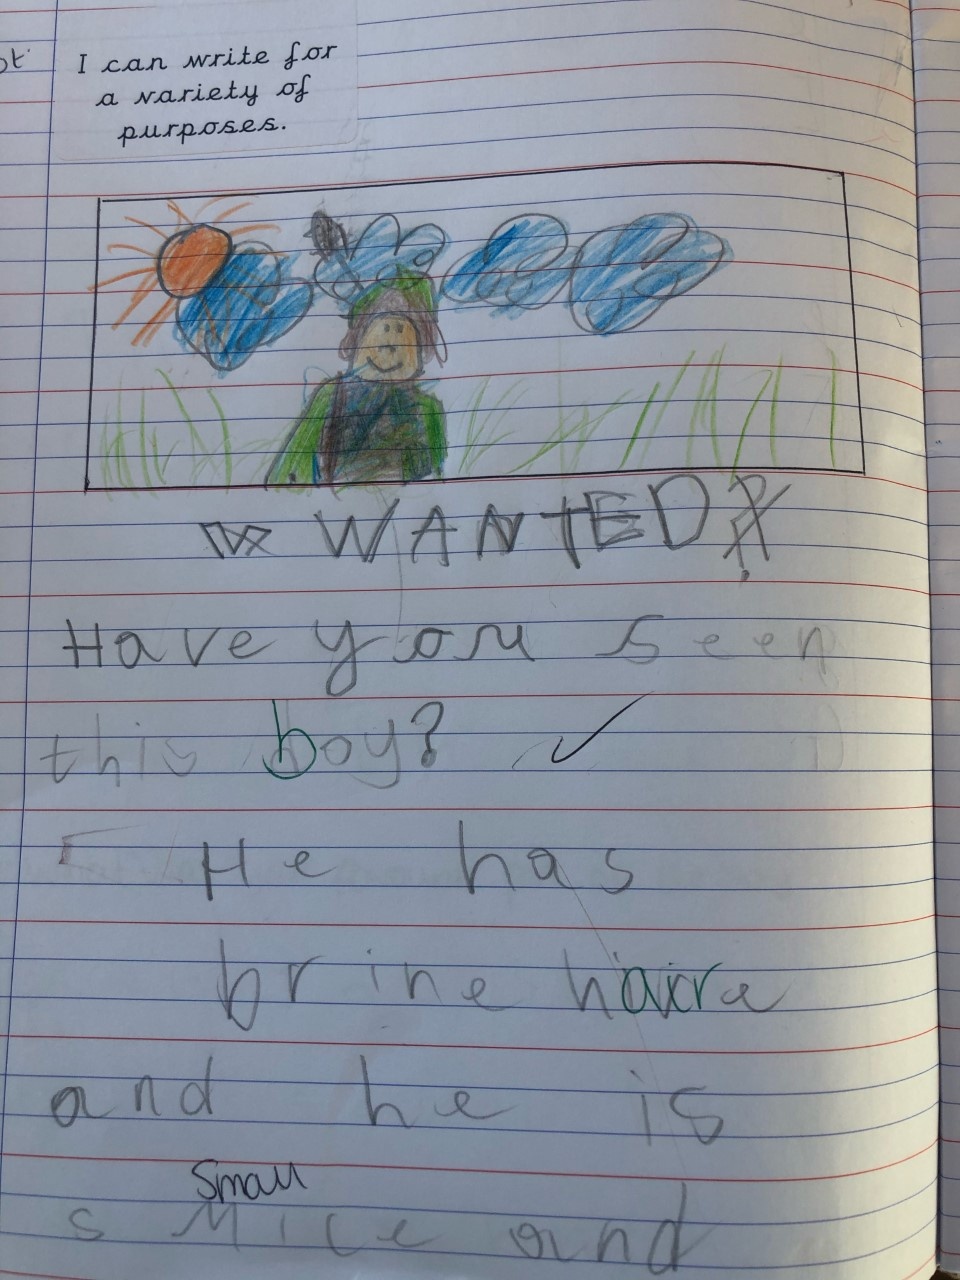 I can write for
a variety of
purposes.
WANTED?
Have you seen
this boy?
He has
brine
and he is
small
and